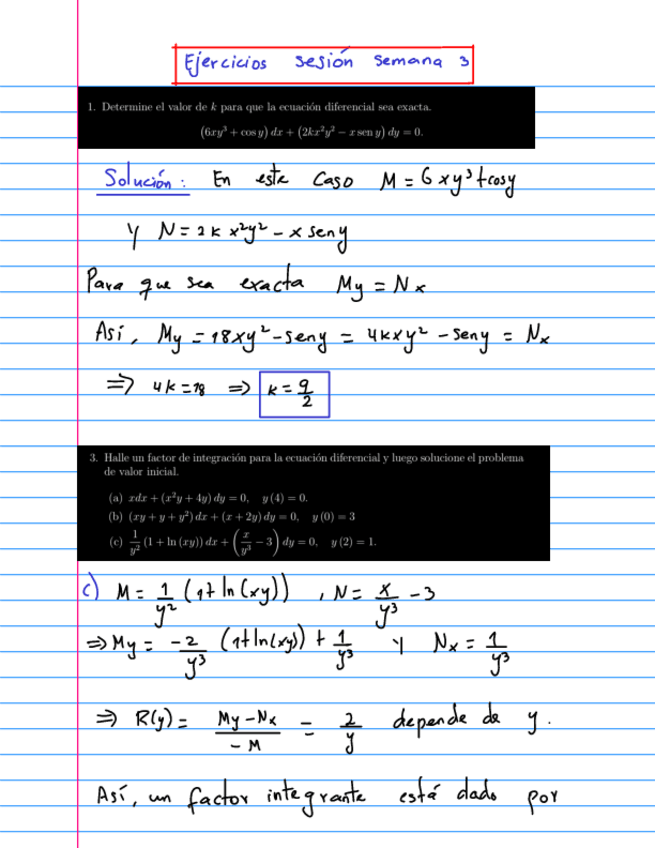 Ejercicios sesión semana 3
1. Determine el valor de k para que la ecuación diferencial sea exacta.
(6xy³ + cos y) dx + (2kx²y² − x sen y) dy = 0.
Solución: En este caso M = 6xy³+cosy
y N = 2k x²y² − x seny
Para que sea exacta My = Nx
Así, My = 18xy² − seny = 4kxy² − seny = Nx
⇒ 4k = 18 ⇒ k = 9/2
3. Halle un factor de integración para la ecuación diferencial y luego solucione el problema
de valor inicial.
(a) xdx + (x²y + 4y) dy = 0, y (4) = 0.
(b) (xy + y + y²) dx + (x + 2y) dy = 0, y (0) = 3
(c) 1/y² (1 + ln (xy)) dx + (x/y³ − 3) dy = 0, y (2) = 1.
c) M = 1/y² (1+ ln (xy)) , N = x/y³ − 3
⇒ My = −2/y³ (1+ln(xy)) + 1/y³ y Nx = 1/y³
⇒ R(y) = My − Nx / −M = 2/y depende de y.
Así, un factor integrante está dado por